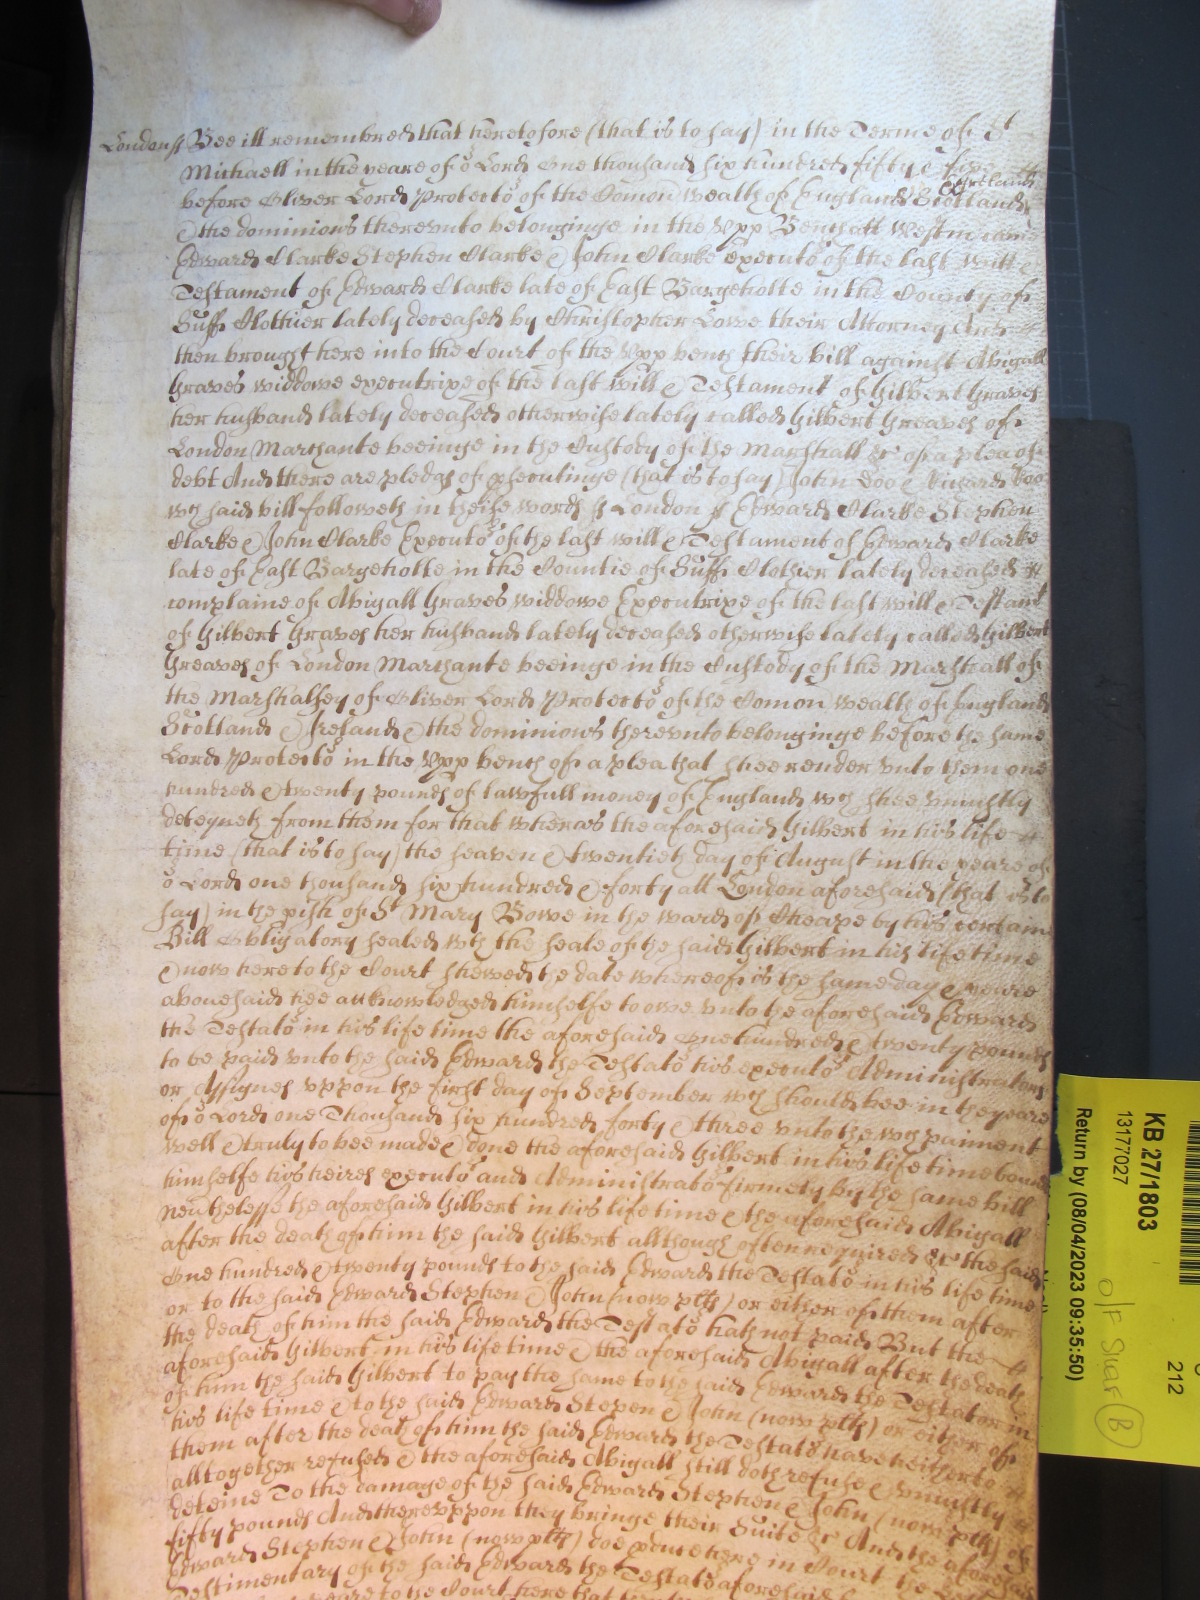 London ss Bee itt remembred that heretofore (that is to say) in the Terme of St
Michaell in the yeare of or Lord One thousand six hundred fifty & five
before Oliver Lord Protector of the Comon wealth of England Scotland & Ireland
& the dominions therevnto belonginge in the vpp Bench att Westm came
Edward Clarke Stephen Clarke & John Clarke executors of the last will &
Testament of Edward Clarke late of East Bargeholte in the County of
Suff Clothier lately deceased by Christopher Lowe their Attorney And
then brought here into the Court of the vpp bench their bill against Abigall
Graves widdowe executrixe of the last will & Testament of Gilbert Graves
her husband lately deceased otherwise lately called Gilbert Greaves of
London Marchante beeinge in the Custody of the Marshall &c of a plea of
debt And there are pledges of prosecutinge (that is to say) John Doo & Richard Roo
wch said bill followeth in theise words ss London ss Edward Clarke Stephen
Clarke & John Clarke Executors of the last will & Testament of Edward Clarke
late of East Bargeholte in the Countie of Suff Clothier lately deceased
complaine of Abigall Graves widdowe Executrixe of the last will & Testamt
of Gilbert Graves her husband lately deceased otherwise lately called Gilbert
Greaves of London Marchante beeinge in the Custody of the Marshall of
the Marshalsey of Oliver Lord Protector of the Comon wealth of England
Scotland & Ireland & the dominions therevnto belonginge before the same
Lord Protector in the vpp bench of a plea that shee render vnto them one
hundred & twenty pounds of lawfull money of England wch shee vniustly
deteyneth from them for that whereas the aforesaid Gilbert in his life
time (that is to say) the seaven & twentieth day of August in the yeare of
or Lord one thousand six hundred & forty att London aforesaid (that is to
say) in the pish of St Mary Bowe in the ward of Cheape by his certaine
Bill Obligatory sealed wth the seale of the said Gilbert in his life time
& now here to the Court shewed the date whereof is the same day & yeare
abouesaid hee acknowledged himselfe to owe vnto the aforesaid Edward
the Testator in his life time the aforesaid One hundred & twenty pounds
to be paid vnto the said Edward the Testator his executors Administrators
or Assignes vppon the first day of September wch should bee in the yeare
of or Lord one Thousand six hundred forty & three vnto the wch paiment
well & truly to bee made & done the aforesaid Gilbert in his life time bound
himselfe his heires executors and Administrators firmely by the same bill
Neuthelesse the aforesaid Gilbert in his life time & the aforesaid Abigall
after the death of him the said Gilbert allthough often required &c the said
One hundred & twenty pounds to the said Edward the Testator in his life time
or to the said Edward Stephen & John (now plts) or either of them after
the death of him the said Edward the Testator hath not paid But the
aforesaid Gilbert in his life time & the aforesaid Abigall after the death
of him the said Gilbert to pay the same to the said Edward the Testator in
his life time & to the said Edward Stepen & John (now plts) or either of
them after the death of him the said Edward the Testator haue hitherto
alltogether refused & the aforesaid Abigall still doth refuse & vniustly
deteine To the damage of the said Edward Stephen & John (now plts) of
fifty pounds And therevppon they bringe their Suite &c And the aforesaid
Edward Stephen & John (now plts) doe produce here in Court the
Testimentary of the said Edward the Testator aforesaid
to the Court here that
KB 27/1803
13177027
Return by (08/04/2023 09:35:50)
212
O/F Shar B